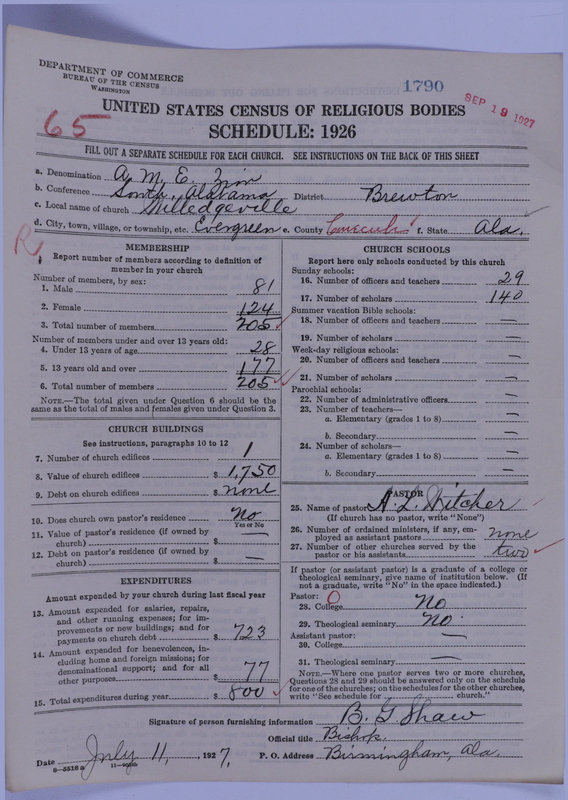 DEPARTMENT OF COMMERCE
BUREAU OF THE CENSUS
WASHINGTON
1790
SEP 19 1927
UNITED STATES CENSUS OF RELIGIOUS BODIES
65
SCHEDULE: 1926
FILL OUT A SEPARATE SCHEDULE FOR EACH CHURCH. SEE INSTRUCTIONS ON THE BACK OF THIS SHEET
a. Denomination A. M. E. Zion
b. Conference South Alabama District Brewton
c. Local name of church Milledgeville
d. City, town, village, or township, etc. Evergreen e. County Conecuh f. State Ala.
R
MEMBERSHIP
Report number of members according to definition of
member in your church
Number of members, by sex:
1. Male 81
2. Female 124
3. Total number of members 205
Number of members under and over 13 years old:
4. Under 13 years of age 28
5. 13 years old and over 177
6. Total number of members 205
NOTE.—The total given under Question 6 should be the
same as the total of males and females given under Question 3.
CHURCH BUILDINGS
See instructions, paragraphs 10 to 12
7. Number of church edifices 1
8. Value of church edifices $ 1,750
9. Debt on church edifices $ none
10. Does church own pastor's residence No
Yes or No
11. Value of pastor's residence (if owned by
church) $ —
12. Debt on pastor's residence (if owned by
church) $ —
EXPENDITURES
Amount expended by your church during last fiscal year
13. Amount expended for salaries, repairs,
and other running expenses; for im-
provements or new buildings; and for
payments on church debt $ 723
14. Amount expended for benevolences, in-
cluding home and foreign missions; for
denominational support; and for all
other purposes $ 77
15. Total expenditures during year $ 800
CHURCH SCHOOLS
Report here only schools conducted by this church
Sunday schools:
16. Number of officers and teachers 29
17. Number of scholars 140
Summer vacation Bible schools:
18. Number of officers and teachers —
19. Number of scholars —
Week-day religious schools:
20. Number of officers and teachers —
21. Number of scholars —
Parochial schools:
22. Number of administrative officers —
23. Number of teachers—
a. Elementary (grades 1 to 8) —
b. Secondary —
24. Number of scholars—
a. Elementary (grades 1 to 8) —
b. Secondary —
PASTOR
25. Name of pastor A. L. Witcher
(If church has no pastor, write "None")
26. Number of ordained ministers, if any, em-
ployed as assistant pastors none
27. Number of other churches served by the
pastor or his assistants two
If pastor (or assistant pastor) is a graduate of a college or
theological seminary, give name of institution below. (If
not a graduate, write "No" in the space indicated.)
Pastor:
28. College No
29. Theological seminary No.
Assistant pastor:
30. College —
31. Theological seminary —
NOTE.—Where one pastor serves two or more churches,
Questions 28 and 29 should be answered only on the schedule
for one of the churches; on the schedules for the other churches,
write "See schedule for church."
Signature of person furnishing information B. G. Shaw
Official title Bishop.
Date July 11, 1927. P. O. Address Birmingham, Ala.
8-5518a